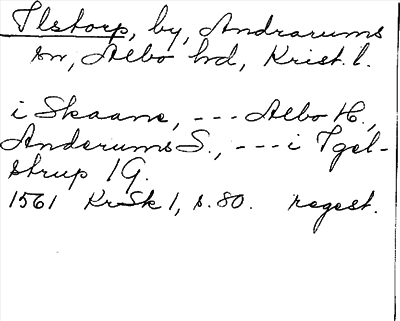 Ilstorp, by, Andrarums
sn, Albo hd, Krist. l.
i Skaane, --- Albo H.,
Anderums S., --- i Igel-
strup 1 G.
1561 KrSk 1, s. 80. regest.